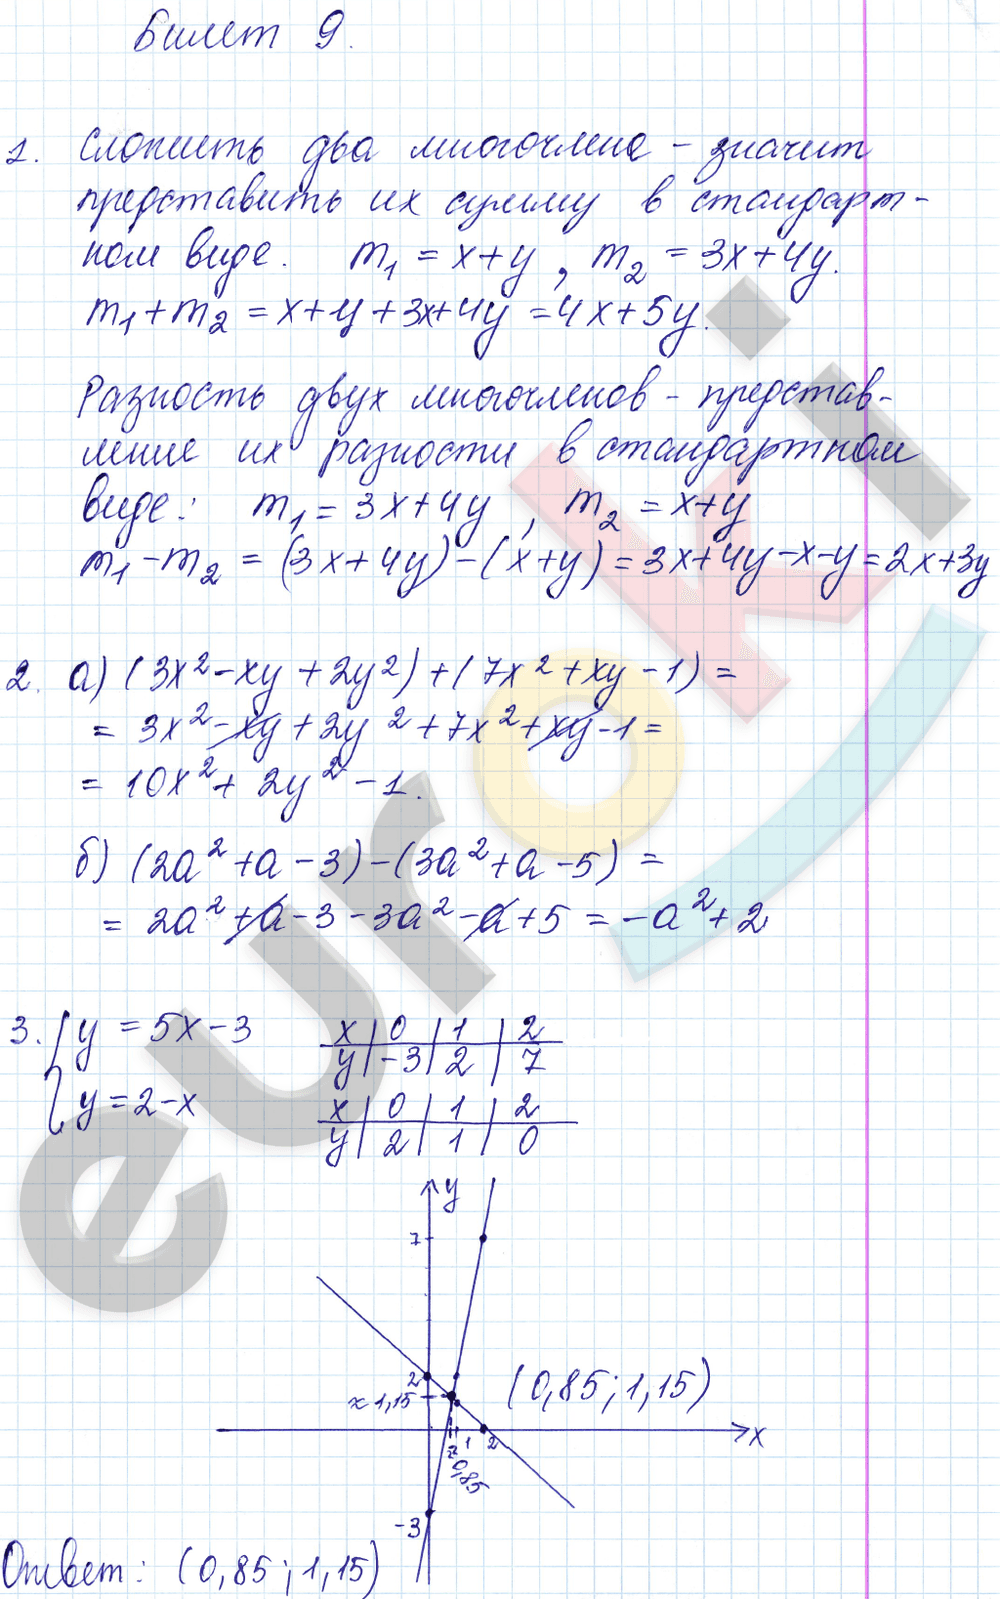 Билет 9.
1. Сложить два многочлена – значит
представить их сумму в стандарт-
ном виде. m₁ = x+y, m₂ = 3x+4y.
m₁+m₂ = x+y+3x+4y = 4x+5y.
Разность двух многочленов – представ-
ление их разности в стандартном
виде: m₁ = 3x+4y, m₂ = x+y
m₁-m₂ = (3x+4y)-(x+y) = 3x+4y-x-y = 2x+3y
2. а) (3x²-xy+2y²)+(7x²+xy-1) =
= 3x²-xy+2y²+7x²+xy-1 =
= 10x²+2y²-1.
б) (2a²+a-3)-(3a²+a-5) =
= 2a²+a-3-3a²-a+5 = -a²+2
3. { y = 5x-3
x | 0 | 1 | 2
y | -3 | 2 | 7
y = 2-x
x | 0 | 1 | 2
y | 2 | 1 | 0
y
7
2
≈1,15
(0,85; 1,15)
x
1
2
≈0,85
-3
Ответ: (0,85; 1,15)
euroki